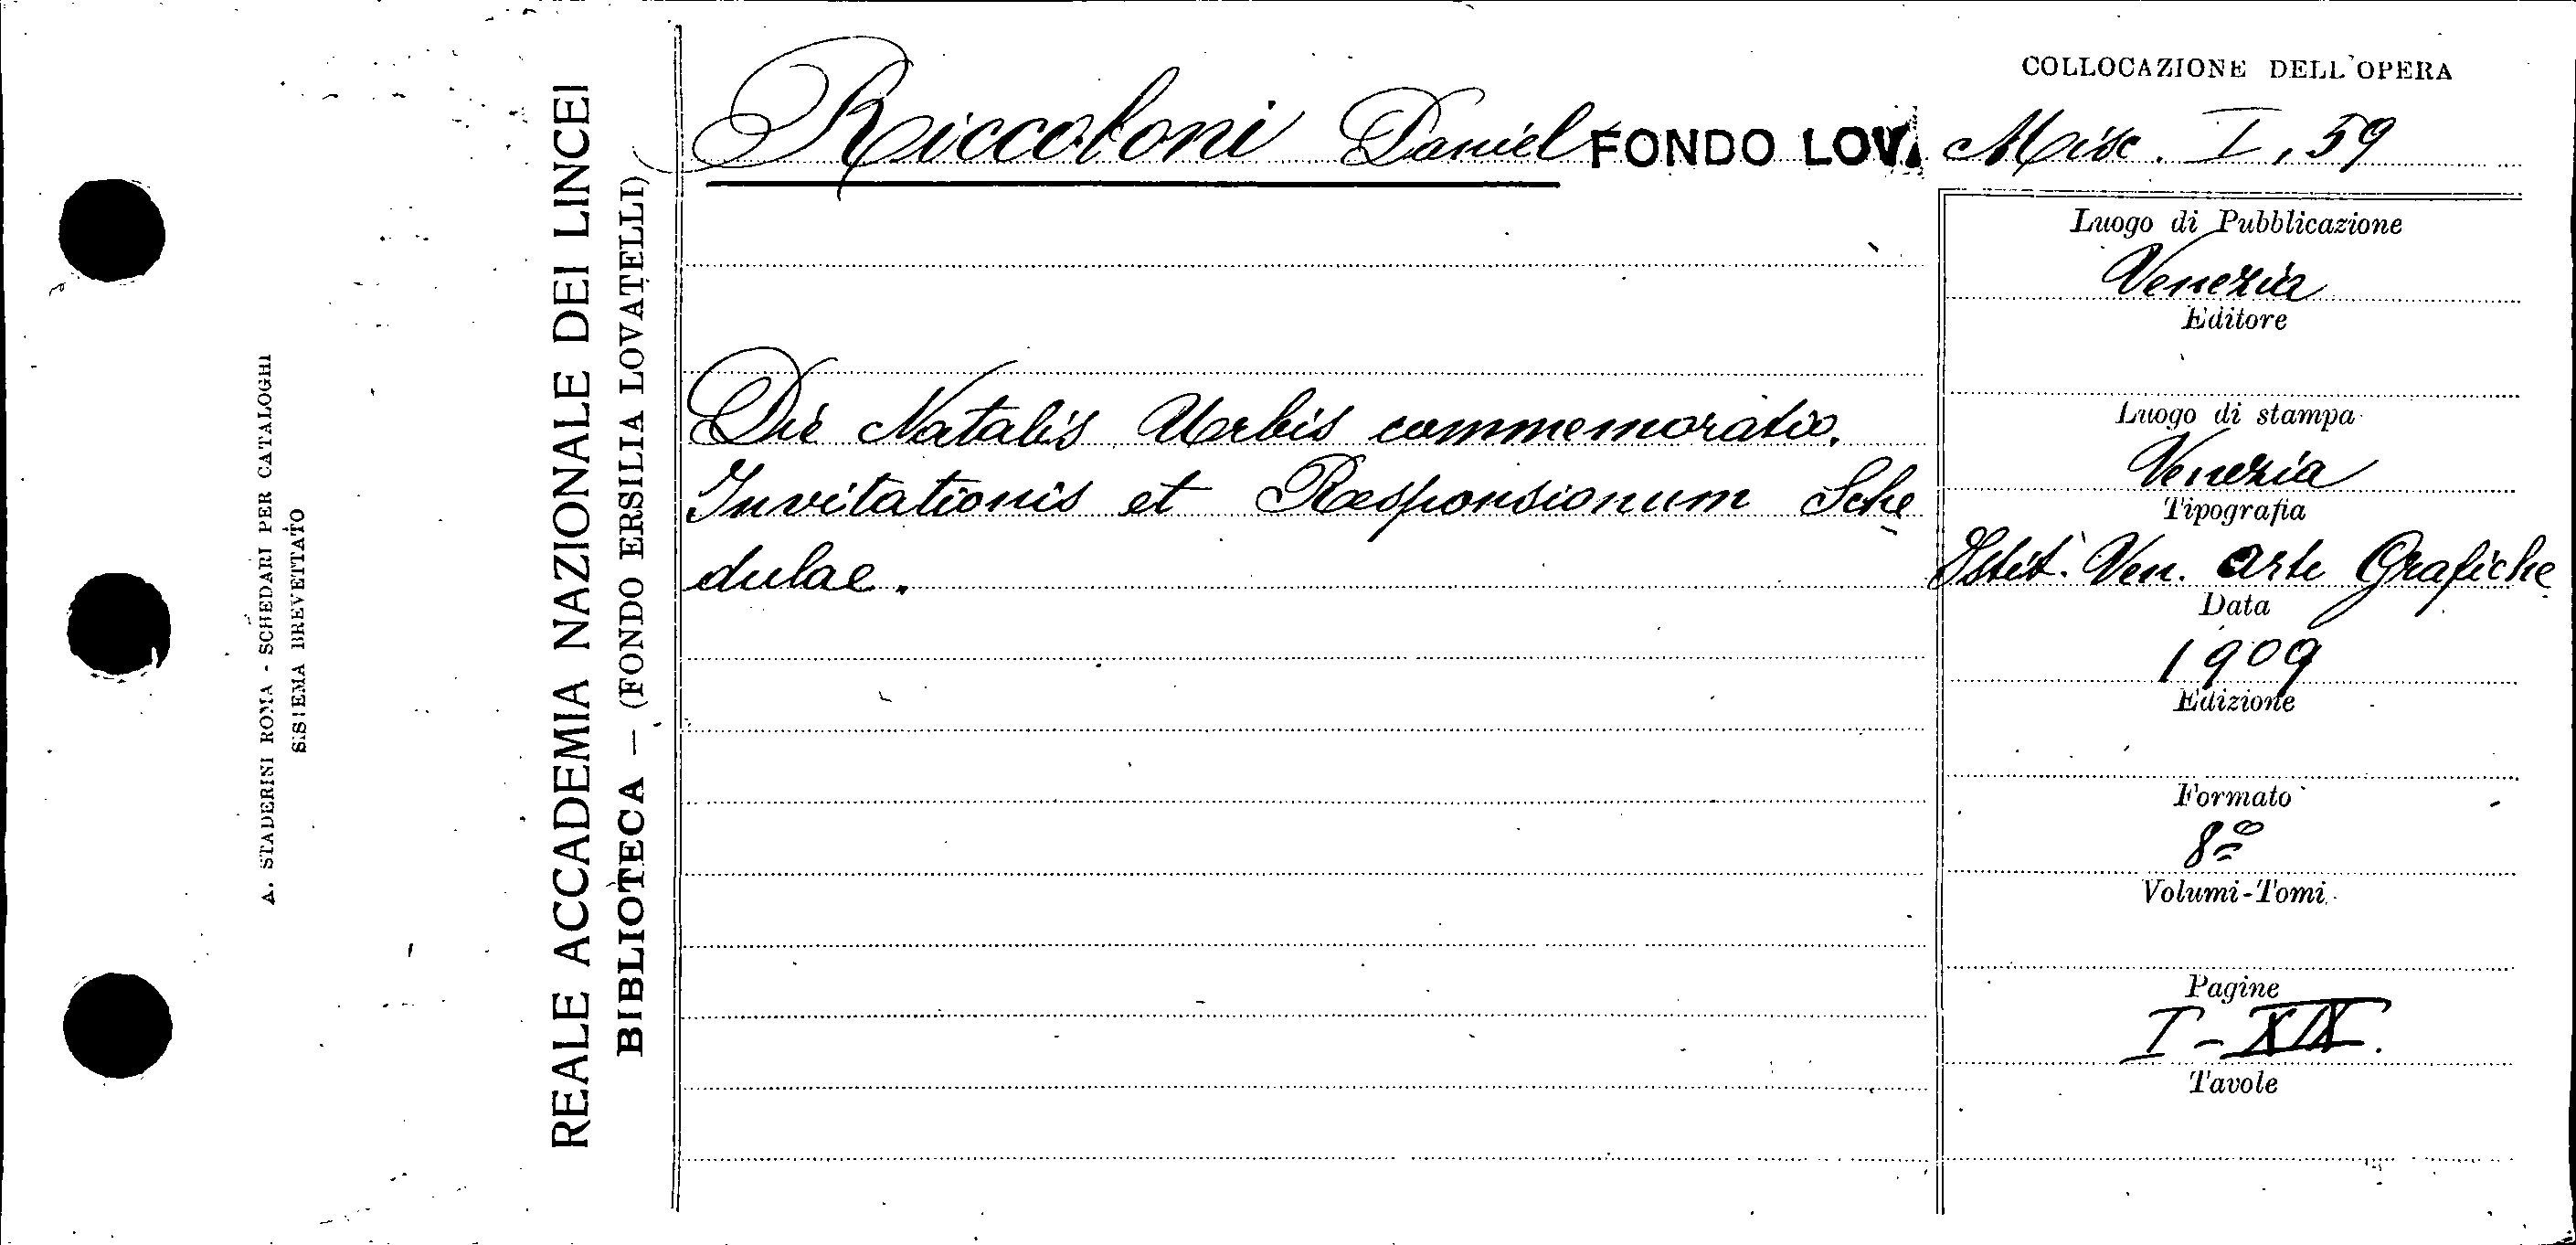 A. STADERINI ROMA - SCHEDARI PER CATALOGHI
SISTEMA BREVETTATO
REALE ACCADEMIA NAZIONALE DEI LINCEI
BIBLIOTECA — (FONDO ERSILIA LOVATELLI)
Riccoboni Daniel FONDO LOV.
Die Natalis Urbis commemoratio.
Invitationis et Responsionum Sche
dulae.
COLLOCAZIONE DELL'OPERA
Misc. I, 59
Luogo di Pubblicazione
Venezia
Editore
Luogo di stampa
Venezia
Tipografia
Istit. Ven. Arte Grafiche
Data
1909
Edizione
Formato
8º
Volumi-Tomi
Pagine
I - XIX.
Tavole